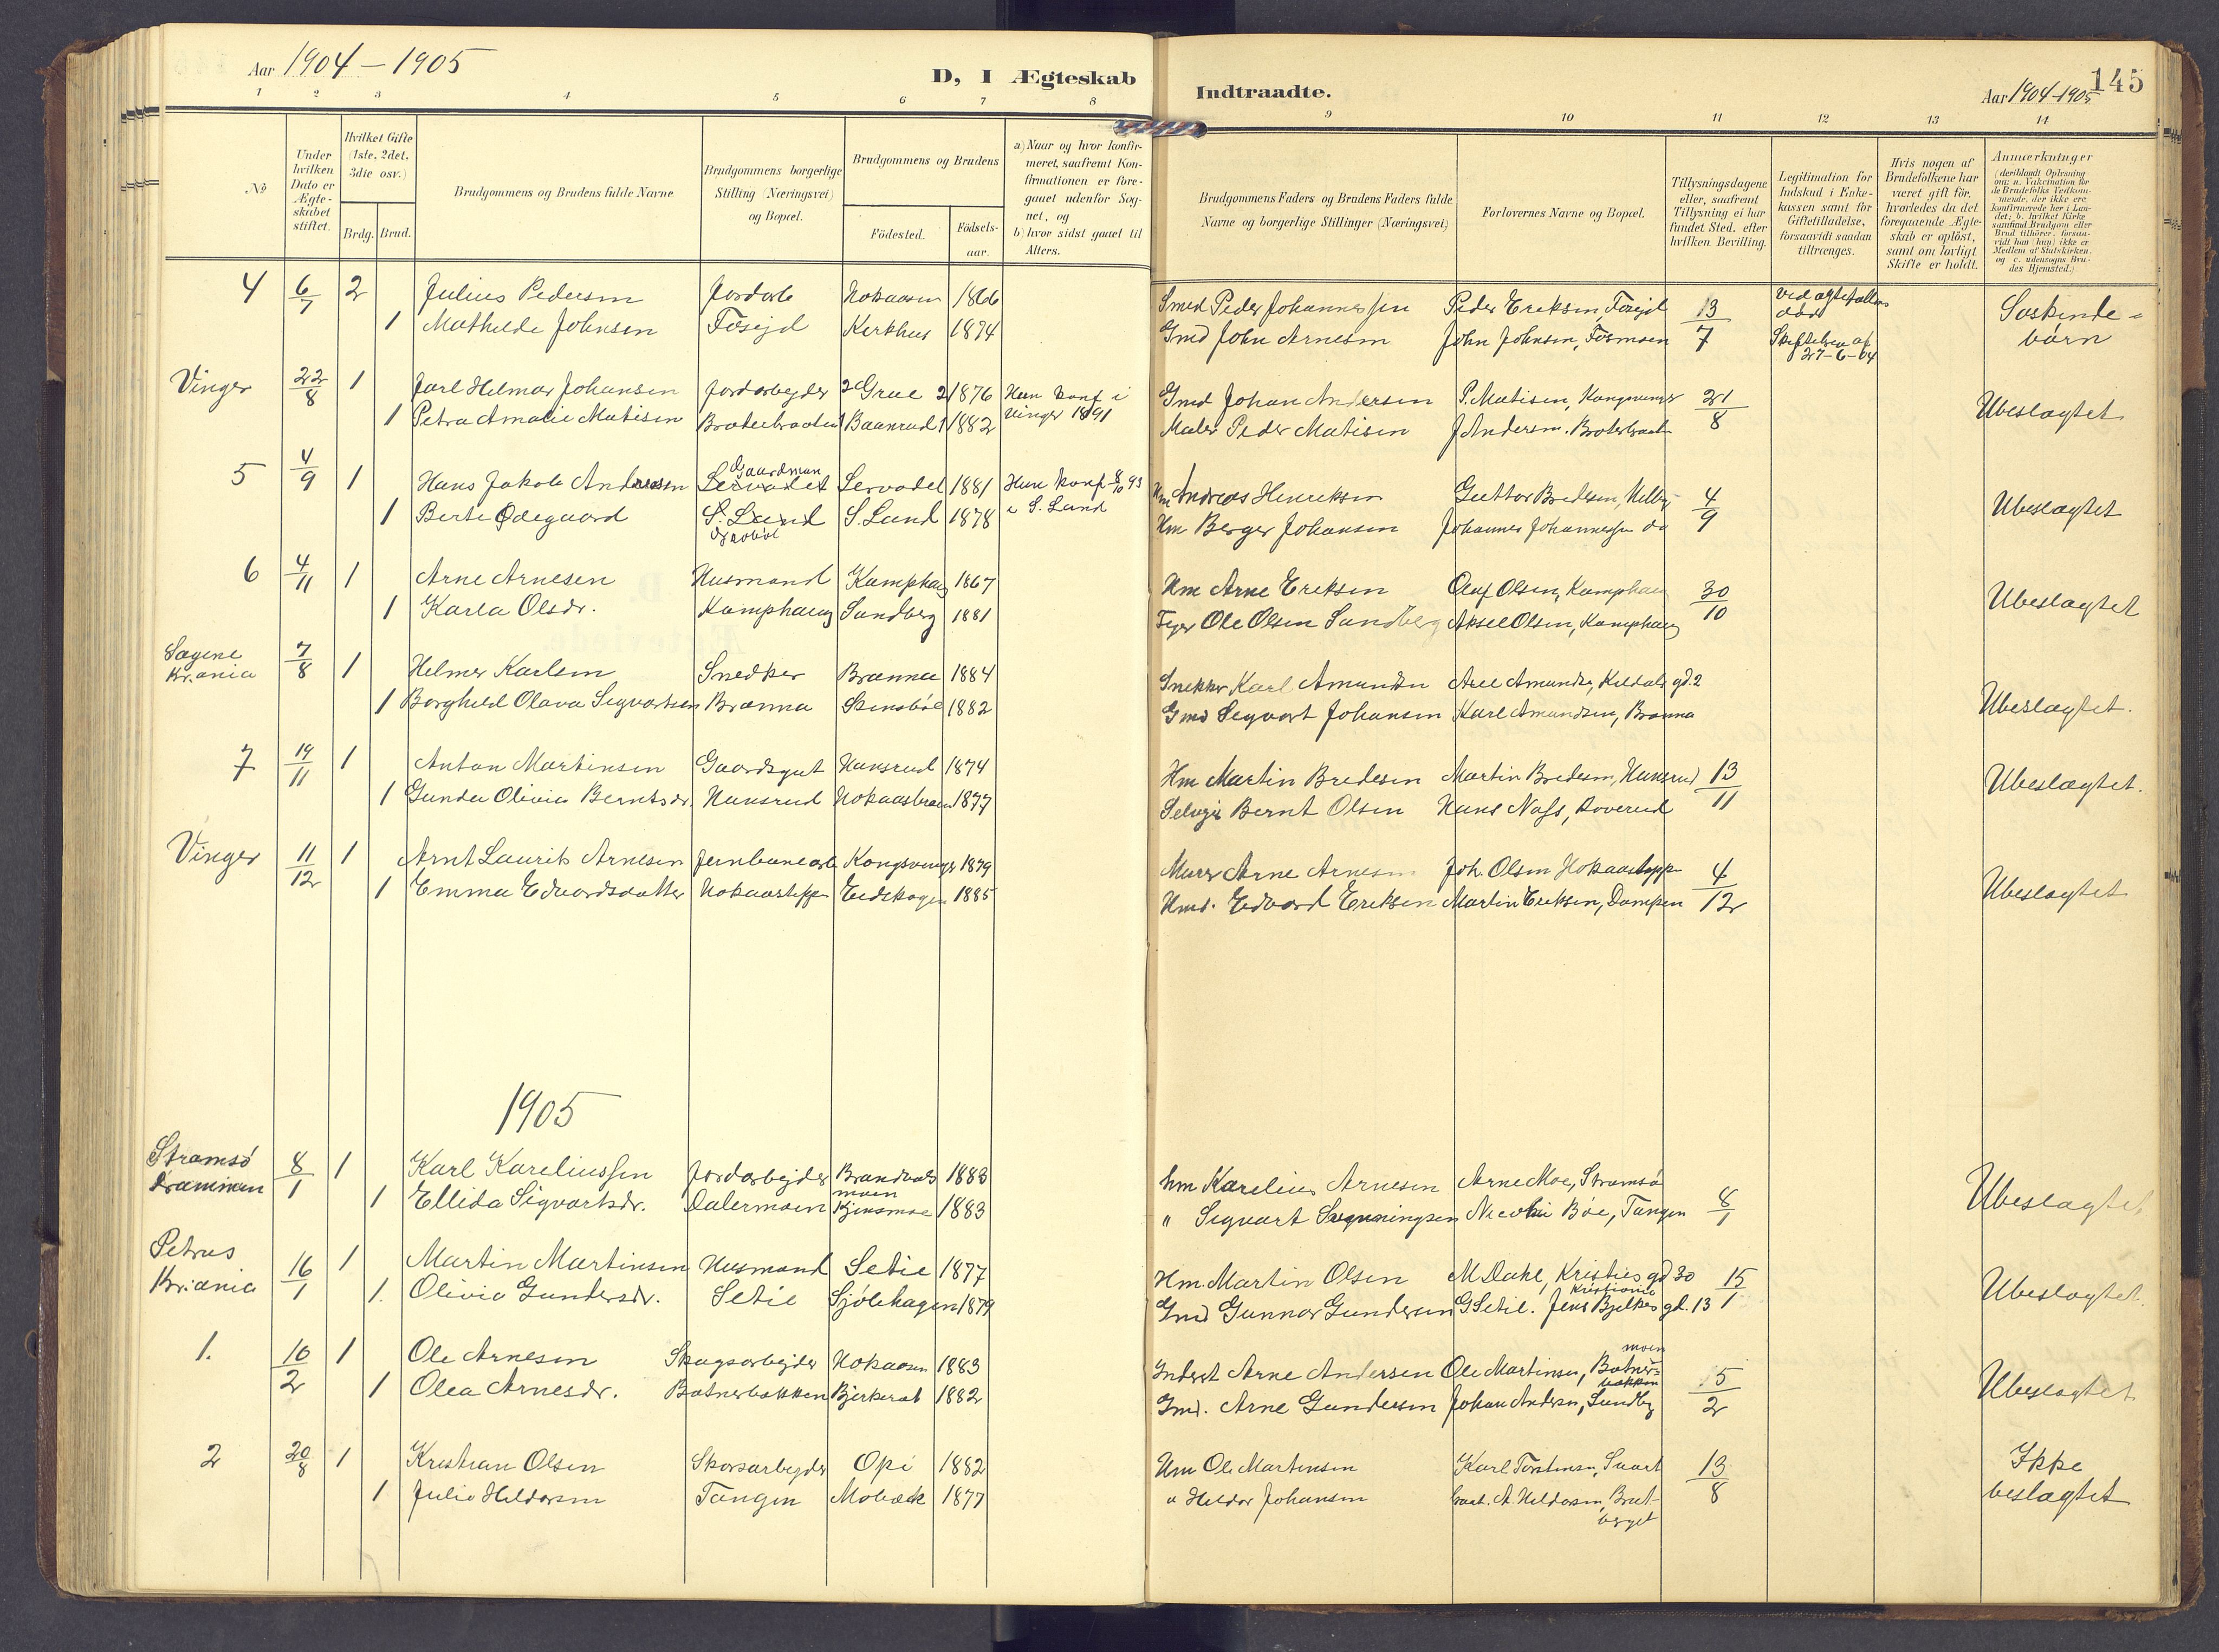 Aar 1904-1905
D, I Ægteskab
Indtraadte.
Aar 1904-1905
145
1 2 3 4 5 6 7 8 9 10 11 12 13 14
№
Under hvilken Dato er Ægteskabet stiftet.
Hvilket Gifte (1ste, 2det, 3die osv.)
Brdg. Brud.
Brudgommens og Brudens fulde Navne
Brudgommens borgerlige Stilling (Næringsvei) og Bopæl.
Brudgommens og Brudens
Födested. Födsels-aar.
a) Naar og hvor konfirmeret, saafremt Konfirmationen er foregaaet udenfor Sognet, og
b) hvor sidst gaaet til Alters.
Brudgommens Faders og Brudens Faders fulde Navne og borgerlige Stillinger (Næringsvei)
Forlovernes Navne og Bopæl.
Tillysningsdagene eller, saafremt Tillysning ei har fundet Sted, efter hvilken Bevilling.
Legitimation for Indskud i Enkekassen samt for Giftetilladelse, forsaavidt saadan tiltrænges.
Hvis nogen af Brudefolkene har været gift för, hvorledes da det foregaaende Ægteskab er oplöst, samt om lovligt Skifte er holdt.
Anmærkninger (deriblandt Oplysning om: a. Vakcination for de Brudefolks Vedkommende, der ikke ere konfirmerede her i Landet; b. hvilket Kirkesamfund Brudgom eller Brud tilhörer, forsaavidt han (hun) ikke er Medlem af Statskirken, og c. udensogns Brudes Hjemsted.)
4 6/7 2 Julius Pedersen Jordarb Hokaasen 1866 Smed Peder Johannessen Peder Eriksen, Fosejd 13/7 ved ægtefælles död Søskinde-
1 Mathilde Johnsen Fosejd Kerkhus 1874 Gmd John Arnesen John Johnsen, Fosmoen Skifteben af 27-6-04 børn
Vinger 22/8 1 Jarl Helmar Johansen Jordarbejder Grue 1876 Hun konf i Gmd Johan Andersen P. Matisen, Kongsvinger 21/8 Ubeslægtet
1 Petra Amalie Matisen Braatebraaten Baanrud 1882 Vinger 1891 Maler Peder Matisen J Andersen. Braatebraat
5 4/9 1 Hans Jakob Andreasen Gaardman Servadet Servadet 1881 Hun konf 8/10 93 Hm Andreas Henriksen Guttor Bredesen, 4/9 Ubeslægtet
1 Berte Ødegaard S. Land S. Land 1878 i S. Land Hm Berger Johansen Johannes Johannessen do
6 4/11 1 Arne Arnesen Husmand Kamphaug 1867 Hm Arne Eriksen Oluf Olsen, Kamphaug 30/10 Ubeslægtet
1 Karla Olsdr. Kamphaug Sandberg 1881 Ole Olsen Sandberg Aksel Olsen, Kamphaug
Sagene Kr.ania 7/8 1 Helmer Karlsen Snedker Branna 1884 Snekker Karl Amundsen Axel Amundsen, gd. 2 Ubeslægtet.
1 Borghild Olava Segvartsen Branna Stensböl 1882 Gmd Segvart Johansen Karl Amundsen, Branna
7 19/11 1 Anton Martinsen Gaardsgut Hansrud 1874 Hm Martin Bredesen Martin Bredesen, Hansrud 13/11 Ubeslægtet.
1 Gunda Olivia Berntsdr. Hansrud Hokaasbraaten 1877 Selvejer Bernt Olsen Hans Næss, Roverud
Vinger 11/12 1 Arnt Laurits Arnesen Jernbanearb Kongsvinger 1879 Murer Arne Arnesen Joh. Olsen Hokaastopp 4/12 Ubeslægtet
1 Emma Edvardsdatter Hokaastoppen Eidskogen 1885 Hmd. Edvard Eriksen Martin Eriksen, Dampen
1905
Strømsø Drammen 8/1 1 Karl Kareliussen Jordarbejder Brandvals moen 1883 hm Karelius Arnesen Arne Moe, Strømsø 8/1 Ubeslægtet.
1 Ellida Sigvartsdr. Dalermoen Kjensmoe 1883 " Segvart Nicolai Böe, Tangen
Petrus Kr.ania 16/1 1 Martin Martinsen Husmand Setie 1877 Hm. Martin Olsen M Dahl, Kristies gd 30 Kristiania 15/1 Ubeslægtet.
1. Olivia Gundersdr. Setie Sjölihagen 1879 Gmd Gunnar Gundersen G Setil. Jens Bjelkes gd. 13
1. 16/2 1 Ole Arnesen Skogsarbejder Hokaasen 1883 Inderst Arne Andersen Ole Martinsen, Batner-moen 15/2 Ubeslægtet
1 Olea Arnesdr. Batnerbakken Bjerkerot 1882 Gmd. Arne Gundersen Johan Andersen, Sundby
2 20/8 1 Kristian Olsen Skovsarbejder Opi 1882 Hm Ole Martinsen Karl Torstensen, 13/8 Ikke
1 Julie Heldorsen Tangen Mobæk 1877 " Heldor Johansen A. Heldorsen, Brat-berget beslægtet